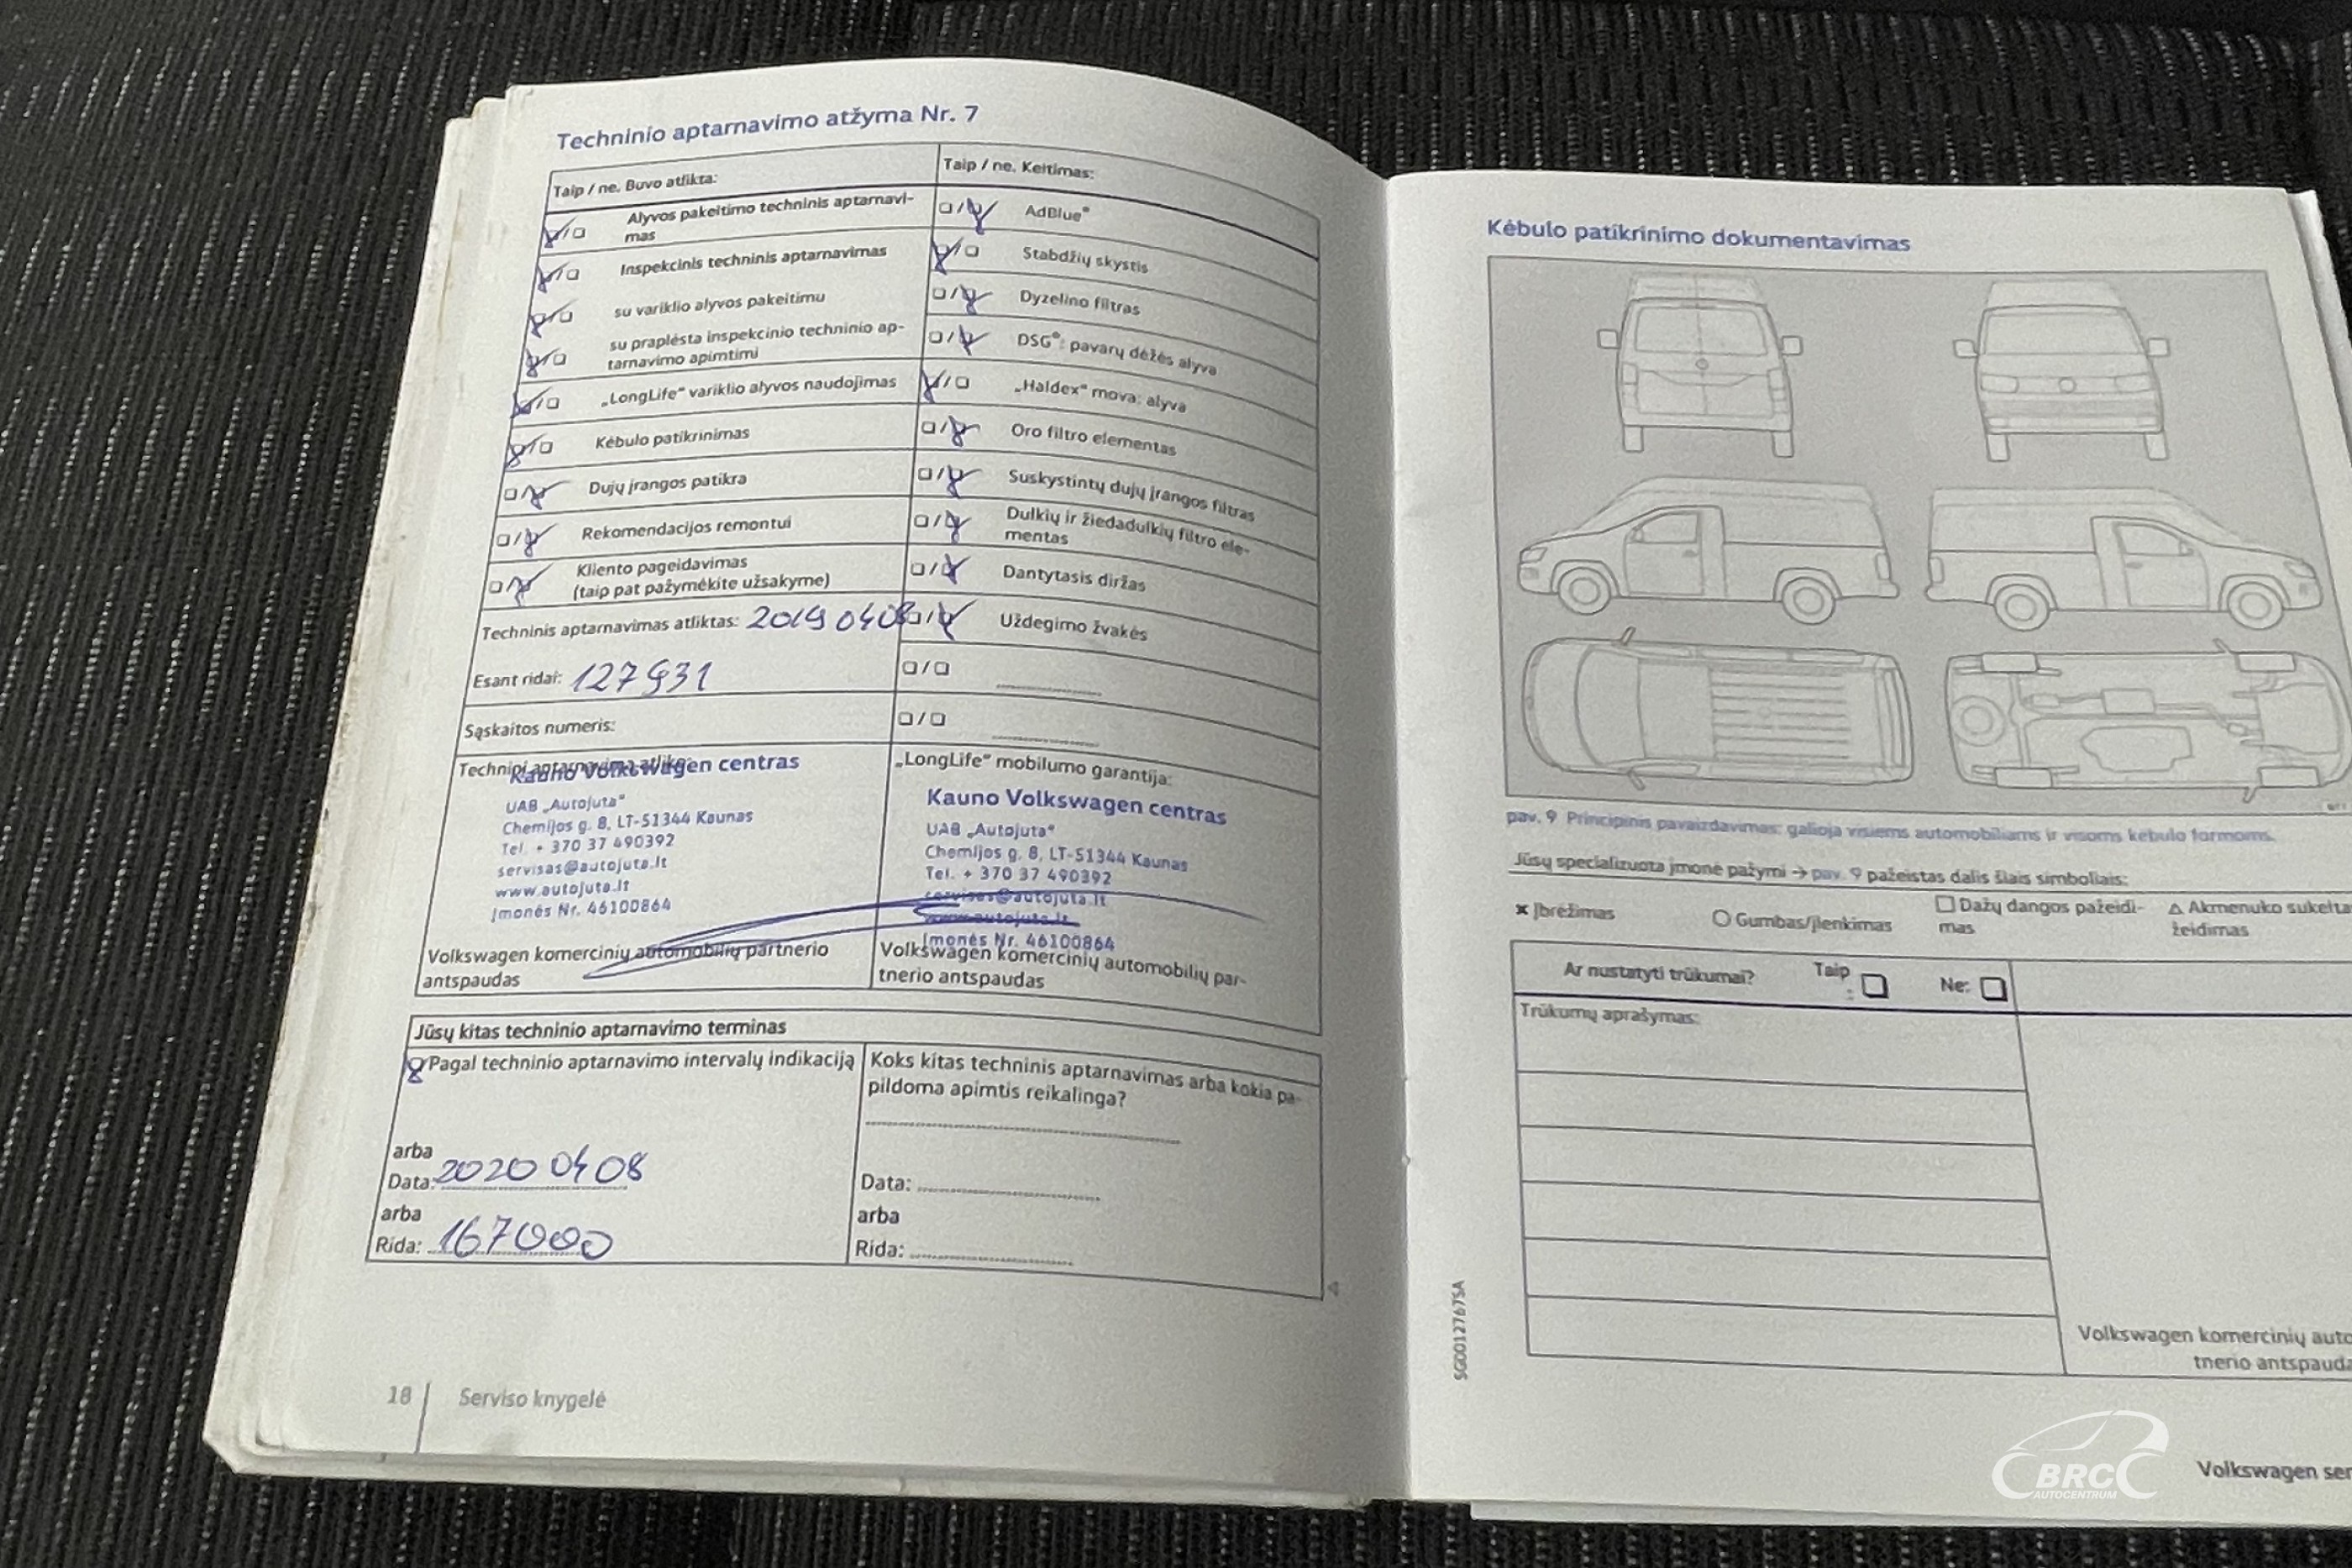 Techninio aptarnavimo atžyma Nr. 7
Taip / ne. Buvo atlikta:
Alyvos pakeitimo techninis aptarnavi-
mas
Inspekcinis techninis aptarnavimas
su variklio alyvos pakeitimu
su praplėsta inspekcinio techninio ap-
tarnavimo apimtimi
„LongLife“ variklio alyvos naudojimas
Kėbulo patikrinimas
Dujų įrangos patikra
Rekomendacijos remontui
Kliento pageidavimas
(taip pat pažymėkite užsakyme)
Techninis aptarnavimas atliktas: 2019 04 08
Esant ridai: 127931
Sąskaitos numeris:
Techninį aptarnavimą atliko:
Kauno Volkswagen centras
UAB „Autojuta“
Chemijos g. 8, LT-51344 Kaunas
Tel. + 370 37 490392
servisas@autojuta.lt
www.autojuta.lt
Įmonės Nr. 46100864
Volkswagen komercinių automobilių partnerio
antspaudas
Taip / ne. Keitimas:
AdBlue®
Stabdžių skystis
Dyzelino filtras
DSG®: pavarų dėžės alyva
„Haldex“ mova: alyva
Oro filtro elementas
Suskystintų dujų įrangos filtras
Dulkių ir žiedadulkių filtro ele-
mentas
Dantytasis diržas
Uždegimo žvakės
„LongLife“ mobilumo garantija:
Kauno Volkswagen centras
UAB „Autojuta“
Chemijos g. 8, LT-51344 Kaunas
Tel. + 370 37 490392
servisas@autojuta.lt
www.autojuta.lt
Įmonės Nr. 46100864
Volkswagen komercinių automobilių par-
tnerio antspaudas
Jūsų kitas techninio aptarnavimo terminas
Pagal techninio aptarnavimo intervalų indikaciją
arba
Data: 2020 04 08
arba
Rida: 167000
Koks kitas techninis aptarnavimas arba kokia pa-
pildoma apimtis reikalinga?
Data:
arba
Rida:
18 Serviso knygelė
Kėbulo patikrinimo dokumentavimas
pav. 9 Principinis pavaizdavimas: galioja visiems automobiliams ir visoms kėbulo formoms.
Jūsų specializuota įmonė pažymi → pav. 9 pažeistas dalis šiais simboliais:
x Įbrėžimas
○ Gumbas/įlenkimas
□ Dažų dangos pažeidi-
mas
△ Akmenuko sukelta
žeidimas
Ar nustatyti trūkumai? Taip: Ne:
Trūkumų aprašymas:
Volkswagen komercinių auto
tnerio antspauda
SGD012767SA
Volkswagen ser
BRC
AUTOCENTRUM